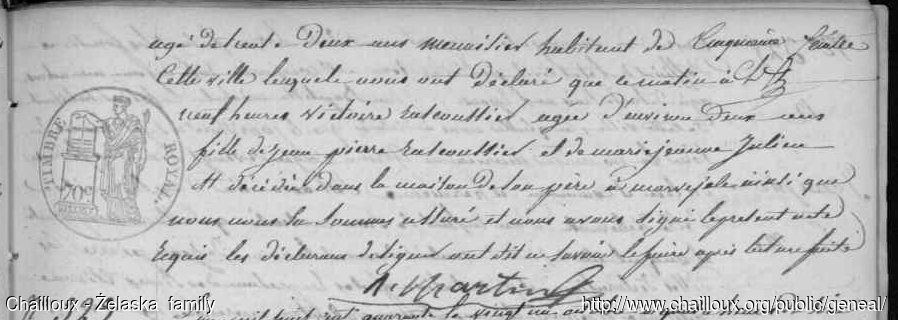 agé de trente Deux ans menuisier habitant de Cinquième feuille
Cette ville lesquels nous ont Déclaré que ce matin à
neuf heures victoire agée d'environ Deux ans
fille de jean pierre et de marie jeanne Julien
est décédée dans la maison de son père à marvejols ainsi que
nous nous en sommes assuré et nous avons signé le present acte
Requis les déclarans de signer ont dit ne savoir le faire après lecture faite
Martin
TIMBRE ROYAL
70c
Chailloux - Żelaska family
http://www.chailloux.org/public/geneal/
quarante le vingt un